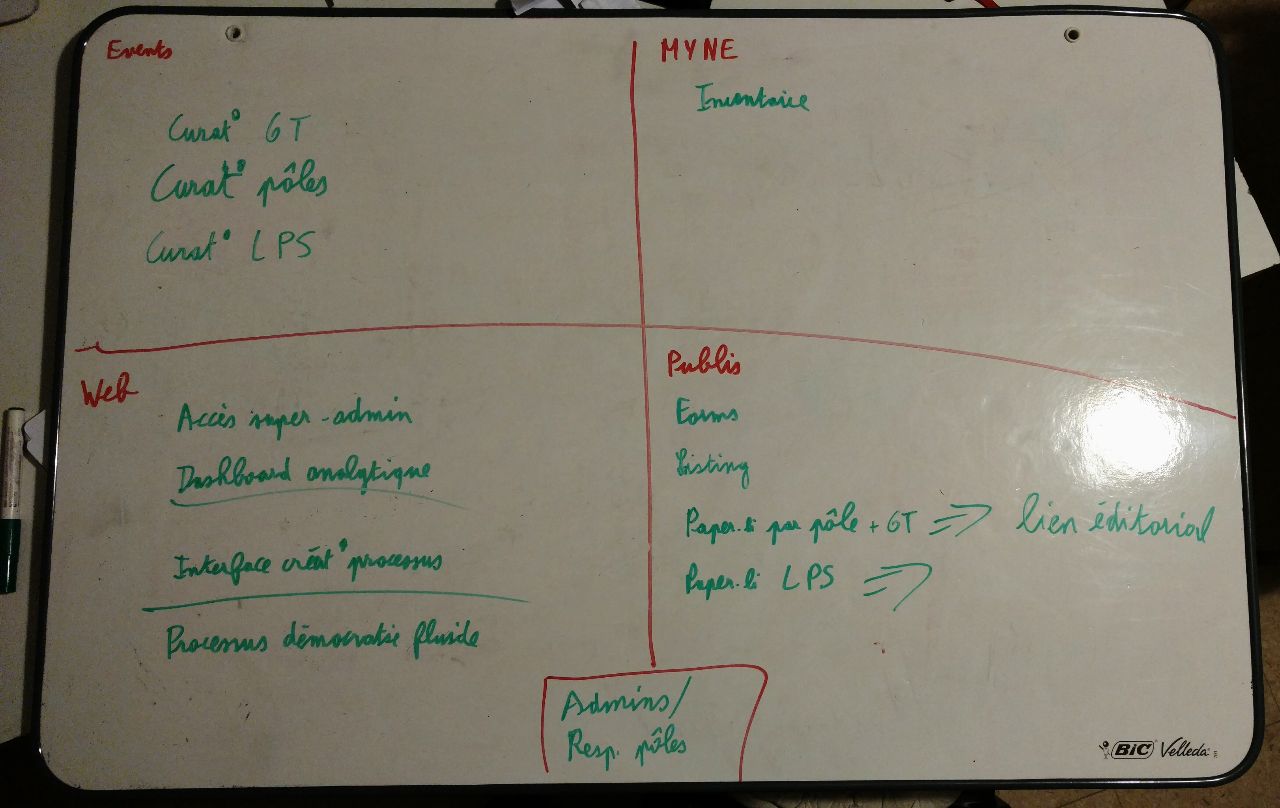 Events
Curat° GT
Curat° pôles
Curat° LPS
MYNE
Inventaire
Web
Accès super-admin
Dashboard analytique
Interface créat° processus
Processus démocratie fluide
Publis
Forms
Listing
Paper.li par pôle + GT => lien éditorial
Paper.li LPS =>
Admins/
Resp. pôles
BIC Velleda